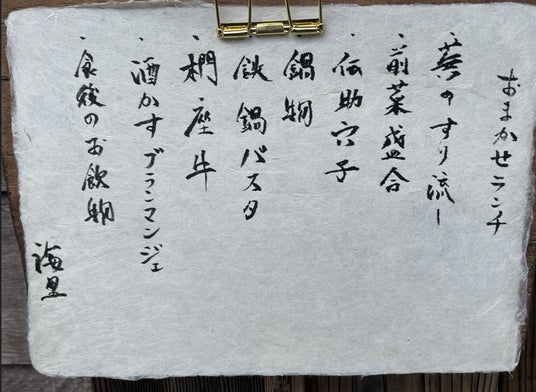 おまかせランチ
・蕪のすり流し
・前菜盛合
・伝助穴子
・鍋物
・鉄鍋パスタ
・椚座牛
・酒かすブランマンジェ
・食後のお飲物
海里